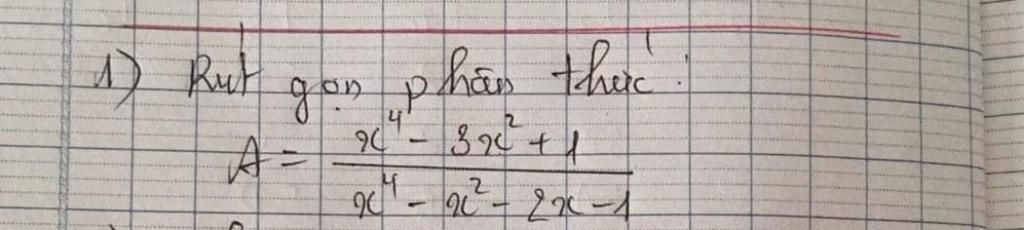 1) Rút gọn phân thức:
A = \frac{x^4 - 3x^2 + 1}{x^4 - x^2 - 2x - 1}